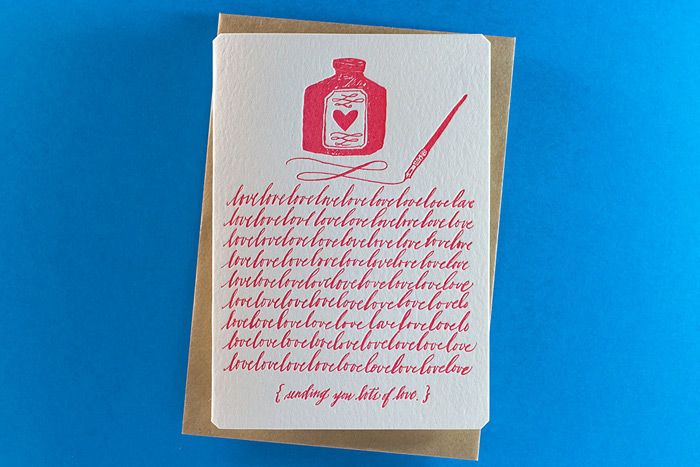 lovelovelovelovelovelovelovelovelove
lovelovelovelovelovelovelovelovelove
lovelovelovelovelovelovelovelovelove
lovelovelovelovelovelovelovelovelove
lovelovelovelovelovelovelovelovelove
lovelovelovelovelovelovelovelovelo
lovelovelovelovelovelovelovelovelo
lovelovelovelovelovelovelovelovelove
lovelovelovelovelovelovelovelovelove
{ sending you lots of love. }